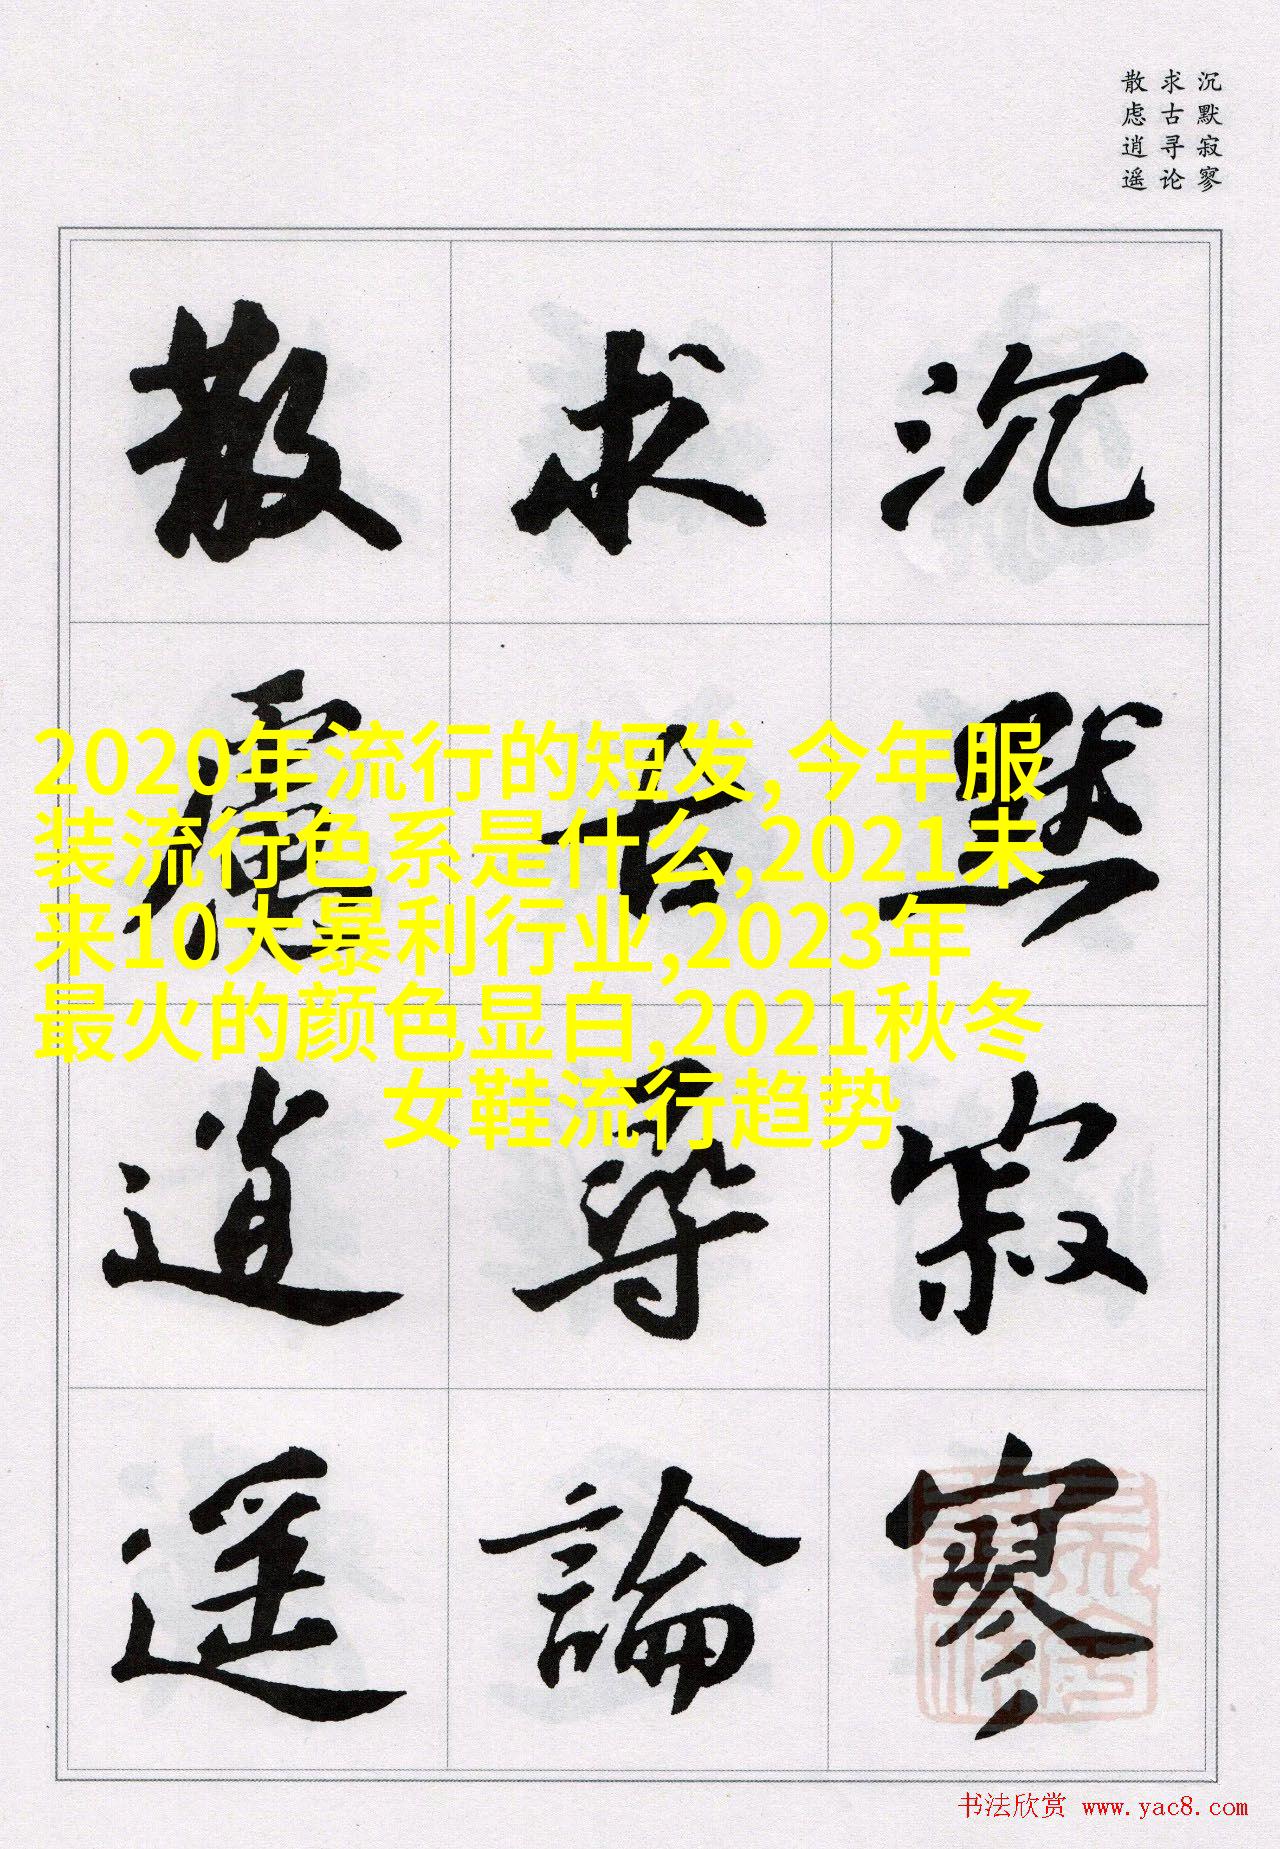 沉默寂寥
求古寻论
散虑逍遥
沉默寂寥
求古尋論
散慮逍遥
2020年流行的短发,今年服
装流行色系是什么,2021未
来10大暴利行业,2023年
最火的颜色显白,2021秋冬
女鞋流行趋势
书法欣赏 www.yac8.com